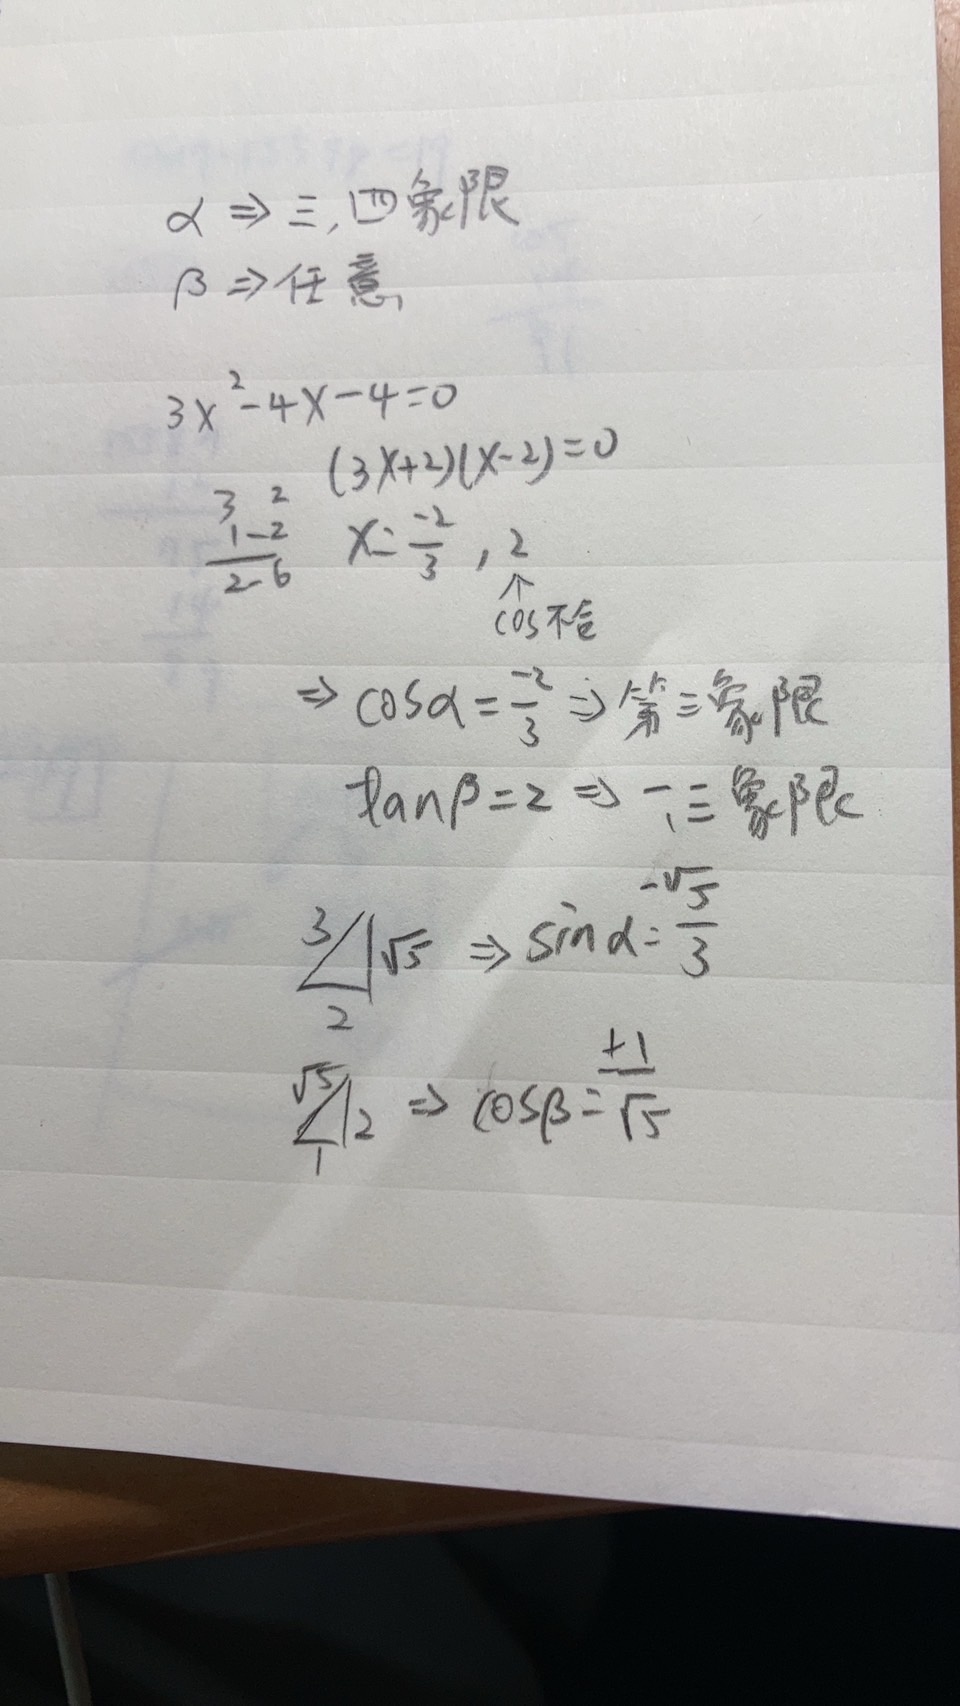 α ⇒ 三, 四象限
β ⇒ 任意
3x²-4x-4=0
(3x+2)(x-2)=0
3 2
1-2
2-6
x= -2/3 , 2
↑
cos不合
⇒ cosα = -2/3 ⇒ 第三象限
tanβ = 2 ⇒ 一, 三象限
3 √5 2 ⇒ sinα = -√5/3
√5 2 1 ⇒ cosβ = ±1/√5